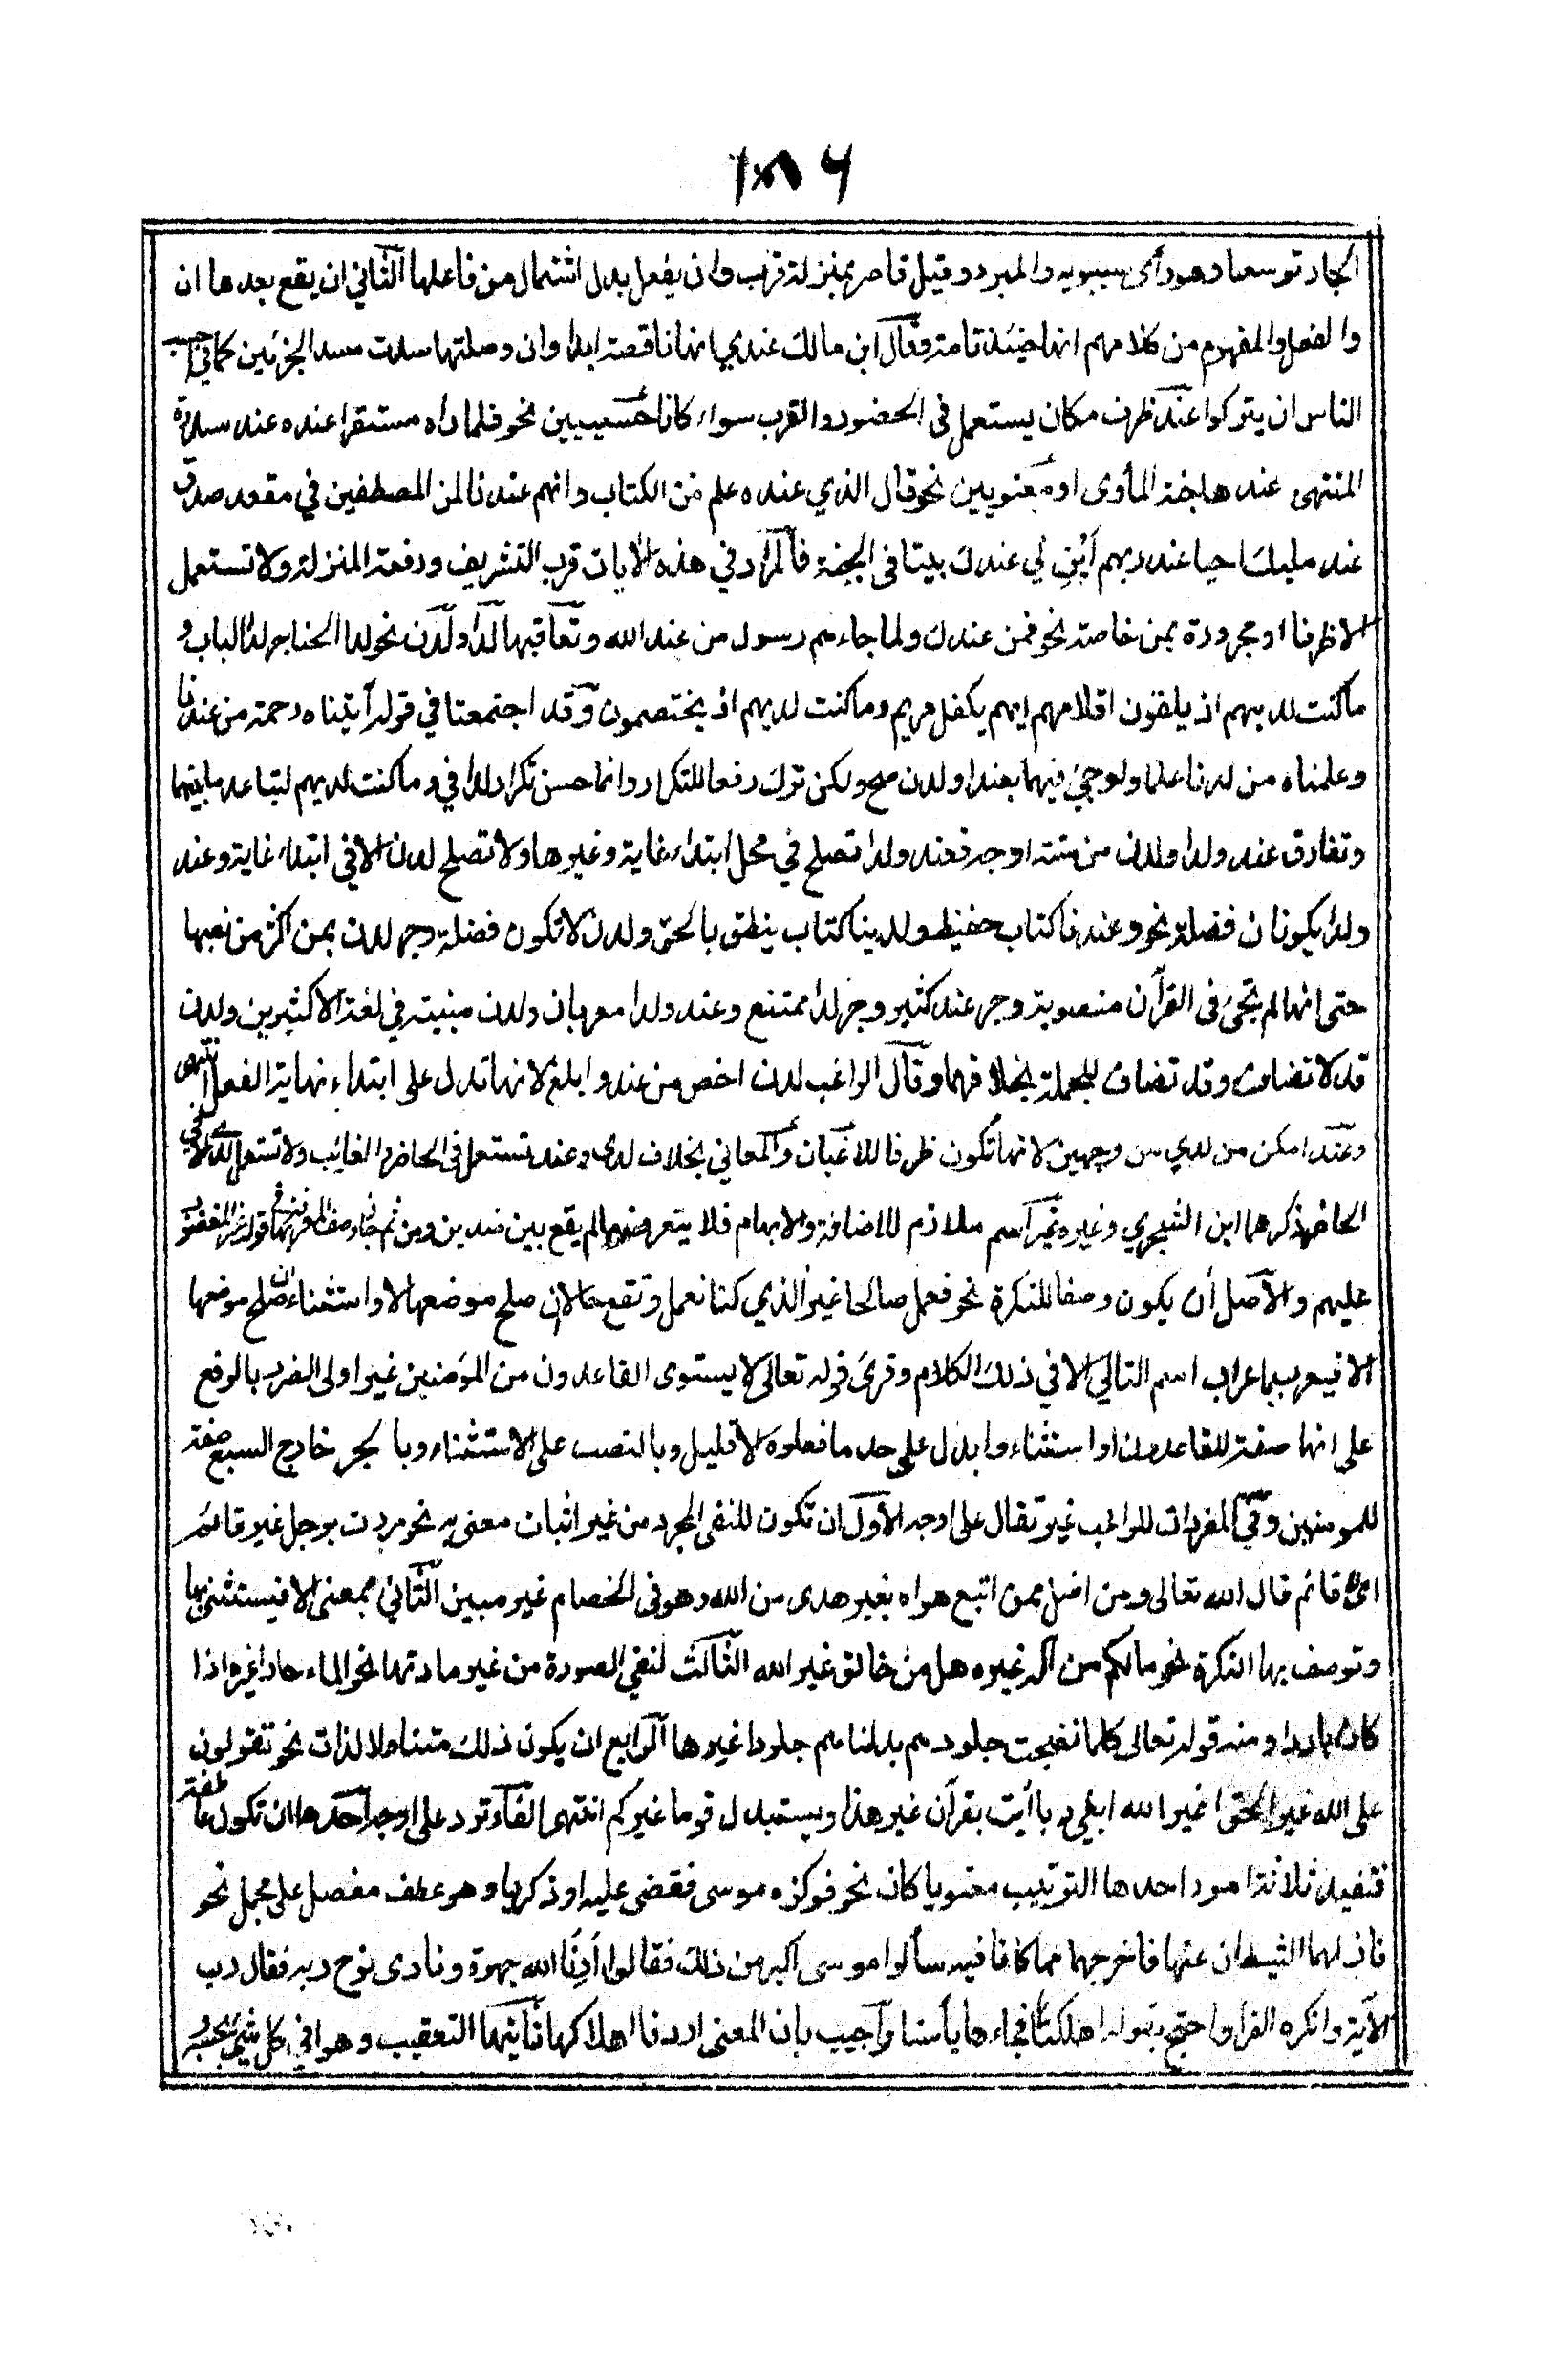 الجار توسعا وهو رأى سيبويه والمبرد وقيل قاصر بمنزلة قرب وان يفعل بدل اشتمال من فاعلها الثاني ان يقع بعدها ان
والفعل والمفهوم من كلامهم انها حينئذ تامة وقال ابن مالك عندي انها ناقصة ابدا وان وصلتها سدت مسد الجزئين كما في احسب
الناس ان يتركوا عند ظرف مكان يستعمل فى الحضور والقرب سواء كانا حسيين نحو فلما رآه مستقرا عنده عند سدرة
المنتهى عندها جنة المأوى او معنويين نحو قال الذي عنده علم من الكتاب وانهم عندنا لمن المصطفين في مقعد صدق
عند مليك احيا عند ربهم ابن لي عندك بيتا فى الجنة فالمراد في هذه الآيات قرب التشريف ورفعة المنزلة ولا تستعمل
الا ظرفا او مجرورة بمن خاصة نحو فمن عندك ولما جاءهم رسول من عند الله وتعاقبها لدا ولدن نحو لدا الحناجر لدا الباب و
ما كنت لديهم اذ يلقون اقلامهم ايهم يكفل مريم وما كنت لديهم اذ يختصمون وقد اجتمعتا في قوله آتيناه رحمة من عندنا
وعلمناه من لدنا علما ولو جئ فيهما بعند او لدن صح ولكن ترك دفعا للتكرار وانما حسن تكرار لدا في وما كنت لديهم لتباعد ما بينهما
وتفارق عند ولدا ولدن من ستة اوجه فعند ولدا تصلح في محل ابتداء غاية وغيرها ولا تصلح لدن الا في ابتداء غاية وعند
ولدا يكونان فضلة نحو وعندنا كتاب حفيظ ولدينا كتاب ينطق بالحق ولدن لا تكون فضلة وجر لدن بمن اكثر من نصبها
حتى انها لم تجئ فى القرآن منصوبة وجر عند كثير وجر لدا ممتنع وعند ولدا معربان ولدن مبنية في لغة الاكثرين ولدن
قد لا تضاف وقد تضاف للجملة بخلافهما وقال الراغب لدن اخص من عند وابلغ لانها تدل على ابتداء نهاية الفعل انتهى
وعند امكن من لدي من وجهين لانها تكون ظرفا للاعيان والمعاني بخلاف لدى وعند تستعمل فى الحاضر والغائب ولا تستعمل لدى الا في
الحاضر ذكرهما ابن الشجري وغيره غير اسم ملازم للاضافة والابهام فلا يتعرف ما لم يقع بين ضدين ومن ثم جاز وصف المعرفة بها في قوله غير المغضوب
عليهم والاصل أن يكون وصفا للنكرة نحو فعمل صالحا غير الذي كنا نعمل وتقع حالا ان صلح موضعها لا واستثناء ان صلح موضعها
الا فيعرب باعراب اسم التالي الا في ذلك الكلام وقرئ قوله تعالى لا يستوى القاعدون من المؤمنين غير اولى الضرر بالرفع
على انها صفة للقاعدون او استثناء وابدل على حد ما فعلوه الا قليل وبالنصب على الاستثناء وبالجر خارج السبع صفة
للمومنين وفي المفردات للراغب غير تقال على اوجه الأول ان تكون للنفى المجرد من غير اثبات معنى به نحو مررت برجل غير قائم
اى لا قائم قال الله تعالى ومن اضل ممن اتبع هواه بغير هدى من الله وهو فى الخصام غير مبين الثاني بمعنى الا فيستثنى بها
وتوصف بها النكرة نحو ما لكم من اله غيره هل من خالق غير الله الثالث لنفي الصورة من غير مادتها نحو الماء حارا غيره اذا
كان باردا ومنه قوله تعالى كلما نضجت جلودهم بدلناهم جلودا غيرها الرابع ان يكون ذلك متناولا لذات نحو تقولون
على الله غير الحق اغير الله ابغي ربا أئت بقرآن غير هذا ويستبدل قوما غيركم انتهى الفاء ترد على اوجه احدها ان تكون عاطفة
فتفيد ثلاثة امور احدها الترتيب معنويا كان نحو فوكزه موسى فقضى عليه او ذكريا وهو عطف مفصل على مجمل نحو
فازلهما الشيطان عنها فاخرجهما مما كانا فيه سألوا موسى اكبر من ذلك فقالوا أرنا الله جهرة ونادى نوح ربه فقال رب
الآية وانكره الفرا واحتج بقوله اهلكناها فجاءها بأسنا وأجيب بان المعنى اردنا اهلاكها ثانيها التعقيب وهو في كل شئ بحسبه